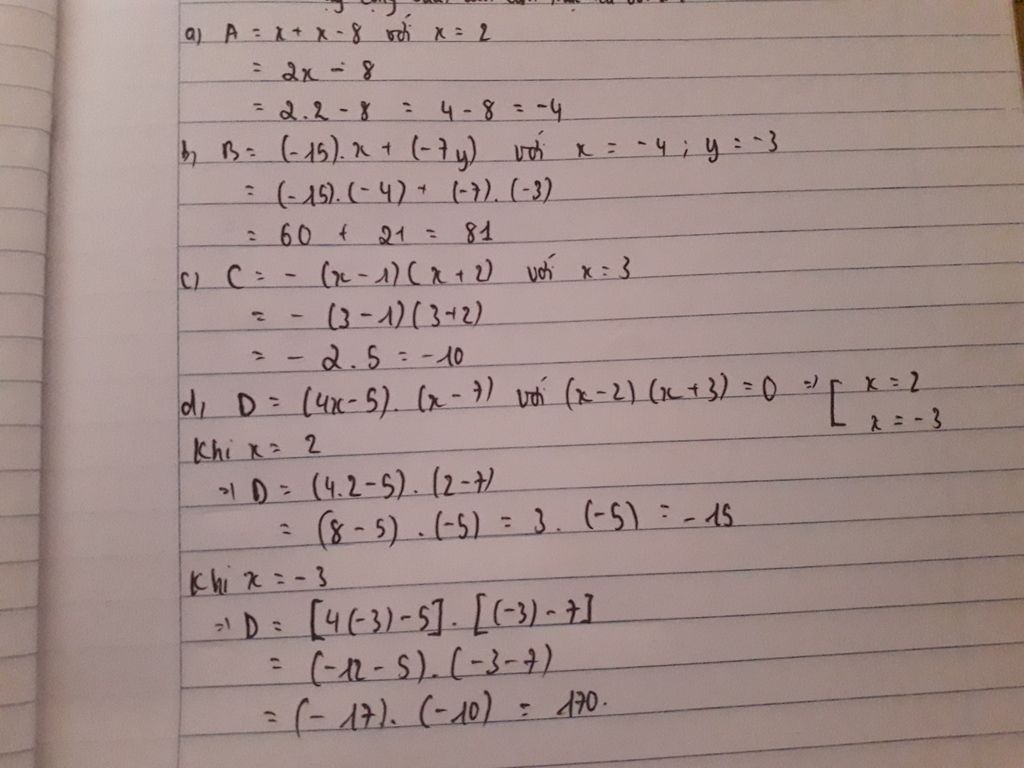 a) A = x + x - 8 với x = 2
= 2x - 8
= 2.2 - 8 = 4 - 8 = -4
b, B = (-15).x + (-7y) với x = -4 ; y = -3
= (-15).(-4) + (-7).(-3)
= 60 + 21 = 81
c) C = - (x - 1)(x + 2) với x = 3
= - (3 - 1)(3+2)
= - 2.5 = -10
d, D = (4x - 5).(x - 7) với (x - 2)(x + 3) = 0 => [ x = 2
x = -3
Khi x = 2
=> D = (4.2 - 5).(2 - 7)
= (8 - 5).(-5) = 3.(-5) = -15
Khi x = -3
=> D = [4(-3) - 5].[(-3) - 7]
= (-12 - 5).(-3 - 7)
= (-17).(-10) = 170.